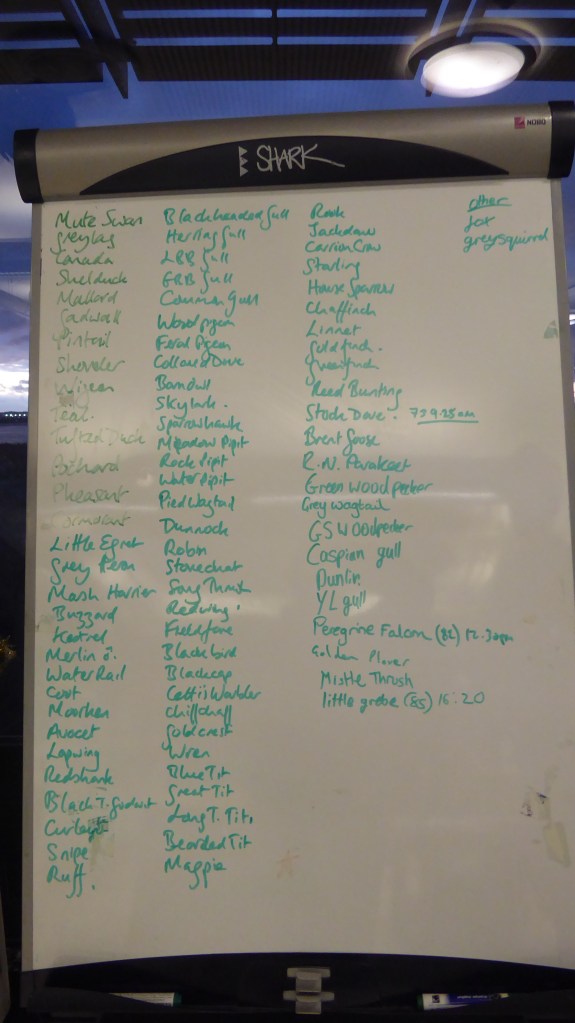 NOBO
SHARK
Mute Swan
Greylag
Canada
Shelduck
Mallard
Gadwall
Pintail
Shoveler
Wigeon
Teal.
Tufted Duck
Pochard
Pheasant
Cormorant
Little Egret
Grey Heron
Marsh Harrier
Buzzard
Kestrel
Merlin ♂.
Water Rail
Coot
Moorhen
Avocet
Lapwing
Redshank
Black T. Godwit
Curlew
Snipe
Ruff.
Blackheaded Gull
Herring Gull
LBB Gull
GBB Gull
Common Gull
Wood pigeon
Feral Pigeon
Collared Dove
Barn Owl
Skylark.
Sparrowhawk
Meadow Pipit
Rock Pipit
Water Pipit
Pied Wagtail
Dunnock
Robin
Stonechat
Song Thrush
Redwing
Fieldfare
Blackbird
Blackcap
Cetti's Warbler
Chiffchaff
Goldcrest
Wren
Blue Tit
Great Tit
Long T. Tit.
Bearded Tit
Magpie
Rook
Jackdaw
Carrion Crow
Starling
House Sparrow
Chaffinch
Linnet
Goldfinch.
Greenfinch
Reed Bunting
Stock Dove. 73 9.28am
Brent Goose
R.N. Parakeet
Green woodpecker
Grey wagtail
GS Woodpecker
Caspian gull
Dunlin
YL gull
Peregrine Falcon (82) 12.30pm
Golden Plover
Mistle Thrush
little grebe (85) 16:20
other
fox
grey squirrel